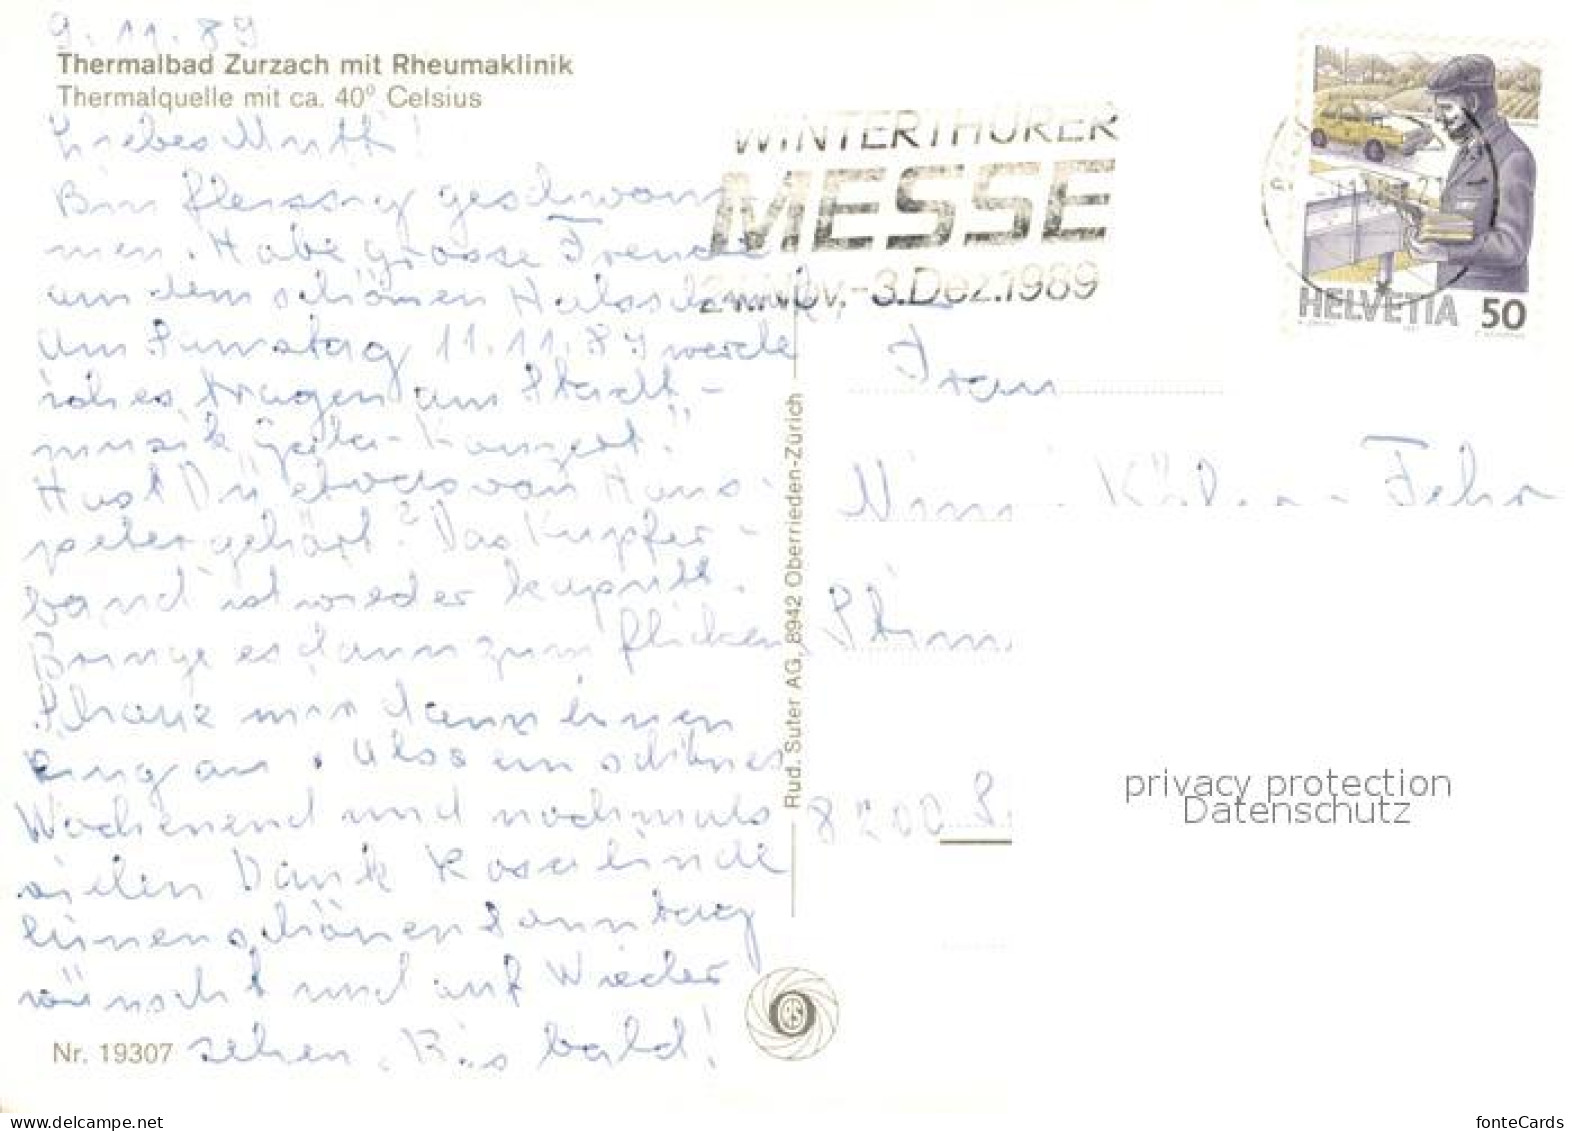 9.11.89
Thermalbad Zurzach mit Rheumaklinik
Thermalquelle mit ca. 40° Celsius
Liebes Mutti!
Bin fleissig geschwom
men. Habe grosse Freude
an dem schönen Halsschmuck
Am Samstag 11.11.89 werde
ich es tragen am Stadt-
musik Gala-Konzert."
Hast Dü etwas von Hans-
peter gehört? Das Kupfer-
band ist wieder kaputt.
Bringe es dann zum flicken
Schaue mir dann einen
Ring an. Also ein schönes
Wochenend und nochmals
vielen Dank Roselinde
einen schönen Sonntag
wünscht und auf Wieder
sehen. Bis bald!
Nr. 19307
WINTERTHURER
MESSE
Nov.-3.Dez.1989
HELVETIA 50
Frau
Fehr
8200
Rud. Suter AG, 8942 Oberrieden-Zürich
RS
privacy protection
Datenschutz
www.delcampe.net
fonteCards